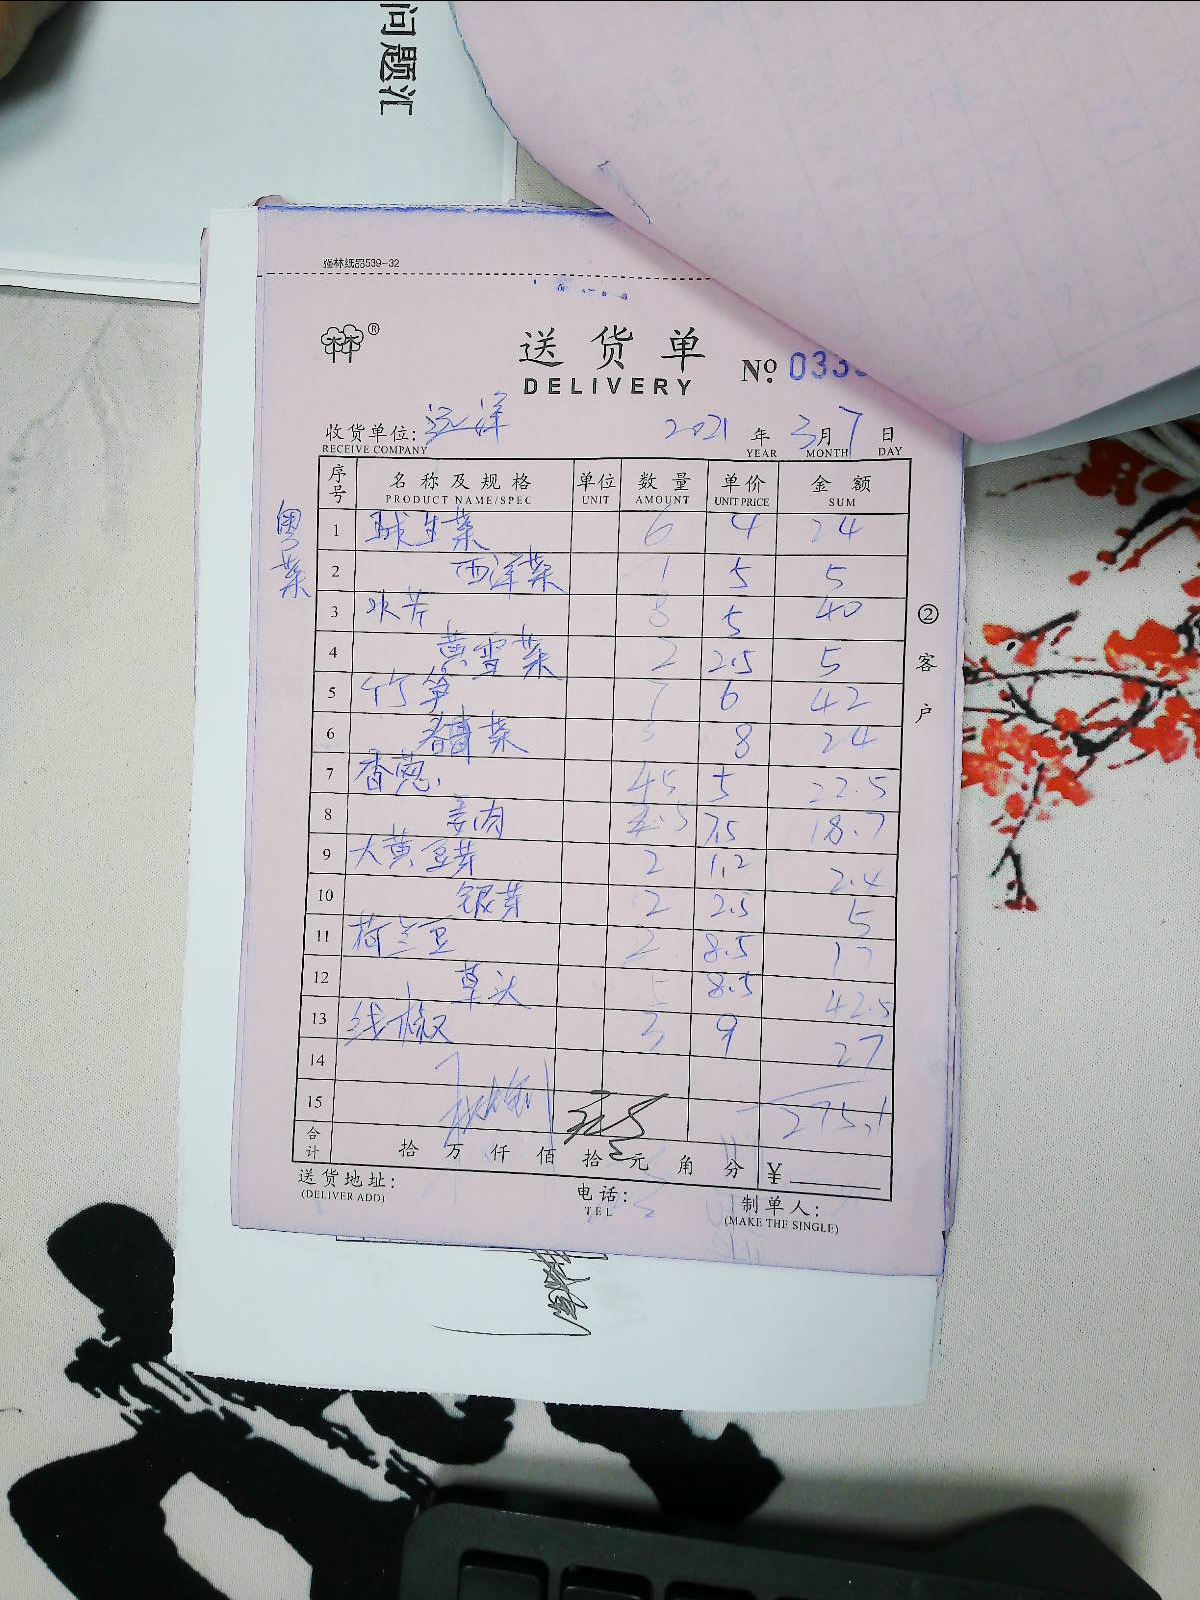 问题汇
强林纸品539-32
®
送货单
DELIVERY
No. 0333
收货单位: 远洋 2021 年 3 月 7 日
RECEIVE COMPANY YEAR MONTH DAY
序号 名称及规格 单位 数量 单价 金额
PRODUCT NAME/SPEC UNIT AMOUNT UNIT PRICE SUM
粤菜
1 球生菜 6 4 24
2 西洋菜 1 5 5
3 水芹 8 5 40
4 黄雪菜 2 2.5 5
5 竹笋 7 6 42
6 菜 3 8 24
7 香葱 4.5 5 22.5
8 姜肉 2.5 7.5 18.7
9 大黄豆芽 2 1.2 2.4
10 银芽 2 2.5 5
11 荷兰豆 2 8.5 17
12 草头 5 8.5 42.5
13 线椒 3 9 27
14
15 275.1
合计 拾 万 仟 佰 拾 元 角 分 ¥
送货地址: 电话: 制单人:
(DELIVER ADD) TEL (MAKE THE SINGLE)
②客户